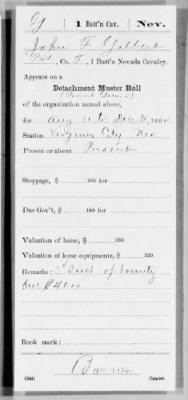 G | 1 Batt'n Cav. | Nev.
John F Gilbert
Pvt, Co. F, 1 Batt'n Nevada Cavalry.
Appears on a
Detachment Muster Roll
of the organization named above,
for Aug 31 to Dec 31, 1864.
Station Virginia City Nev
Present or absent Present
Stoppage, $ 100 for
Due Gov't, $ 100 for
Valuation of horse, $ 100
Valuation of horse equipments, $ 100
Remarks: of bounty
due $40.00
Book mark:
Barnes
(344) Copyist.